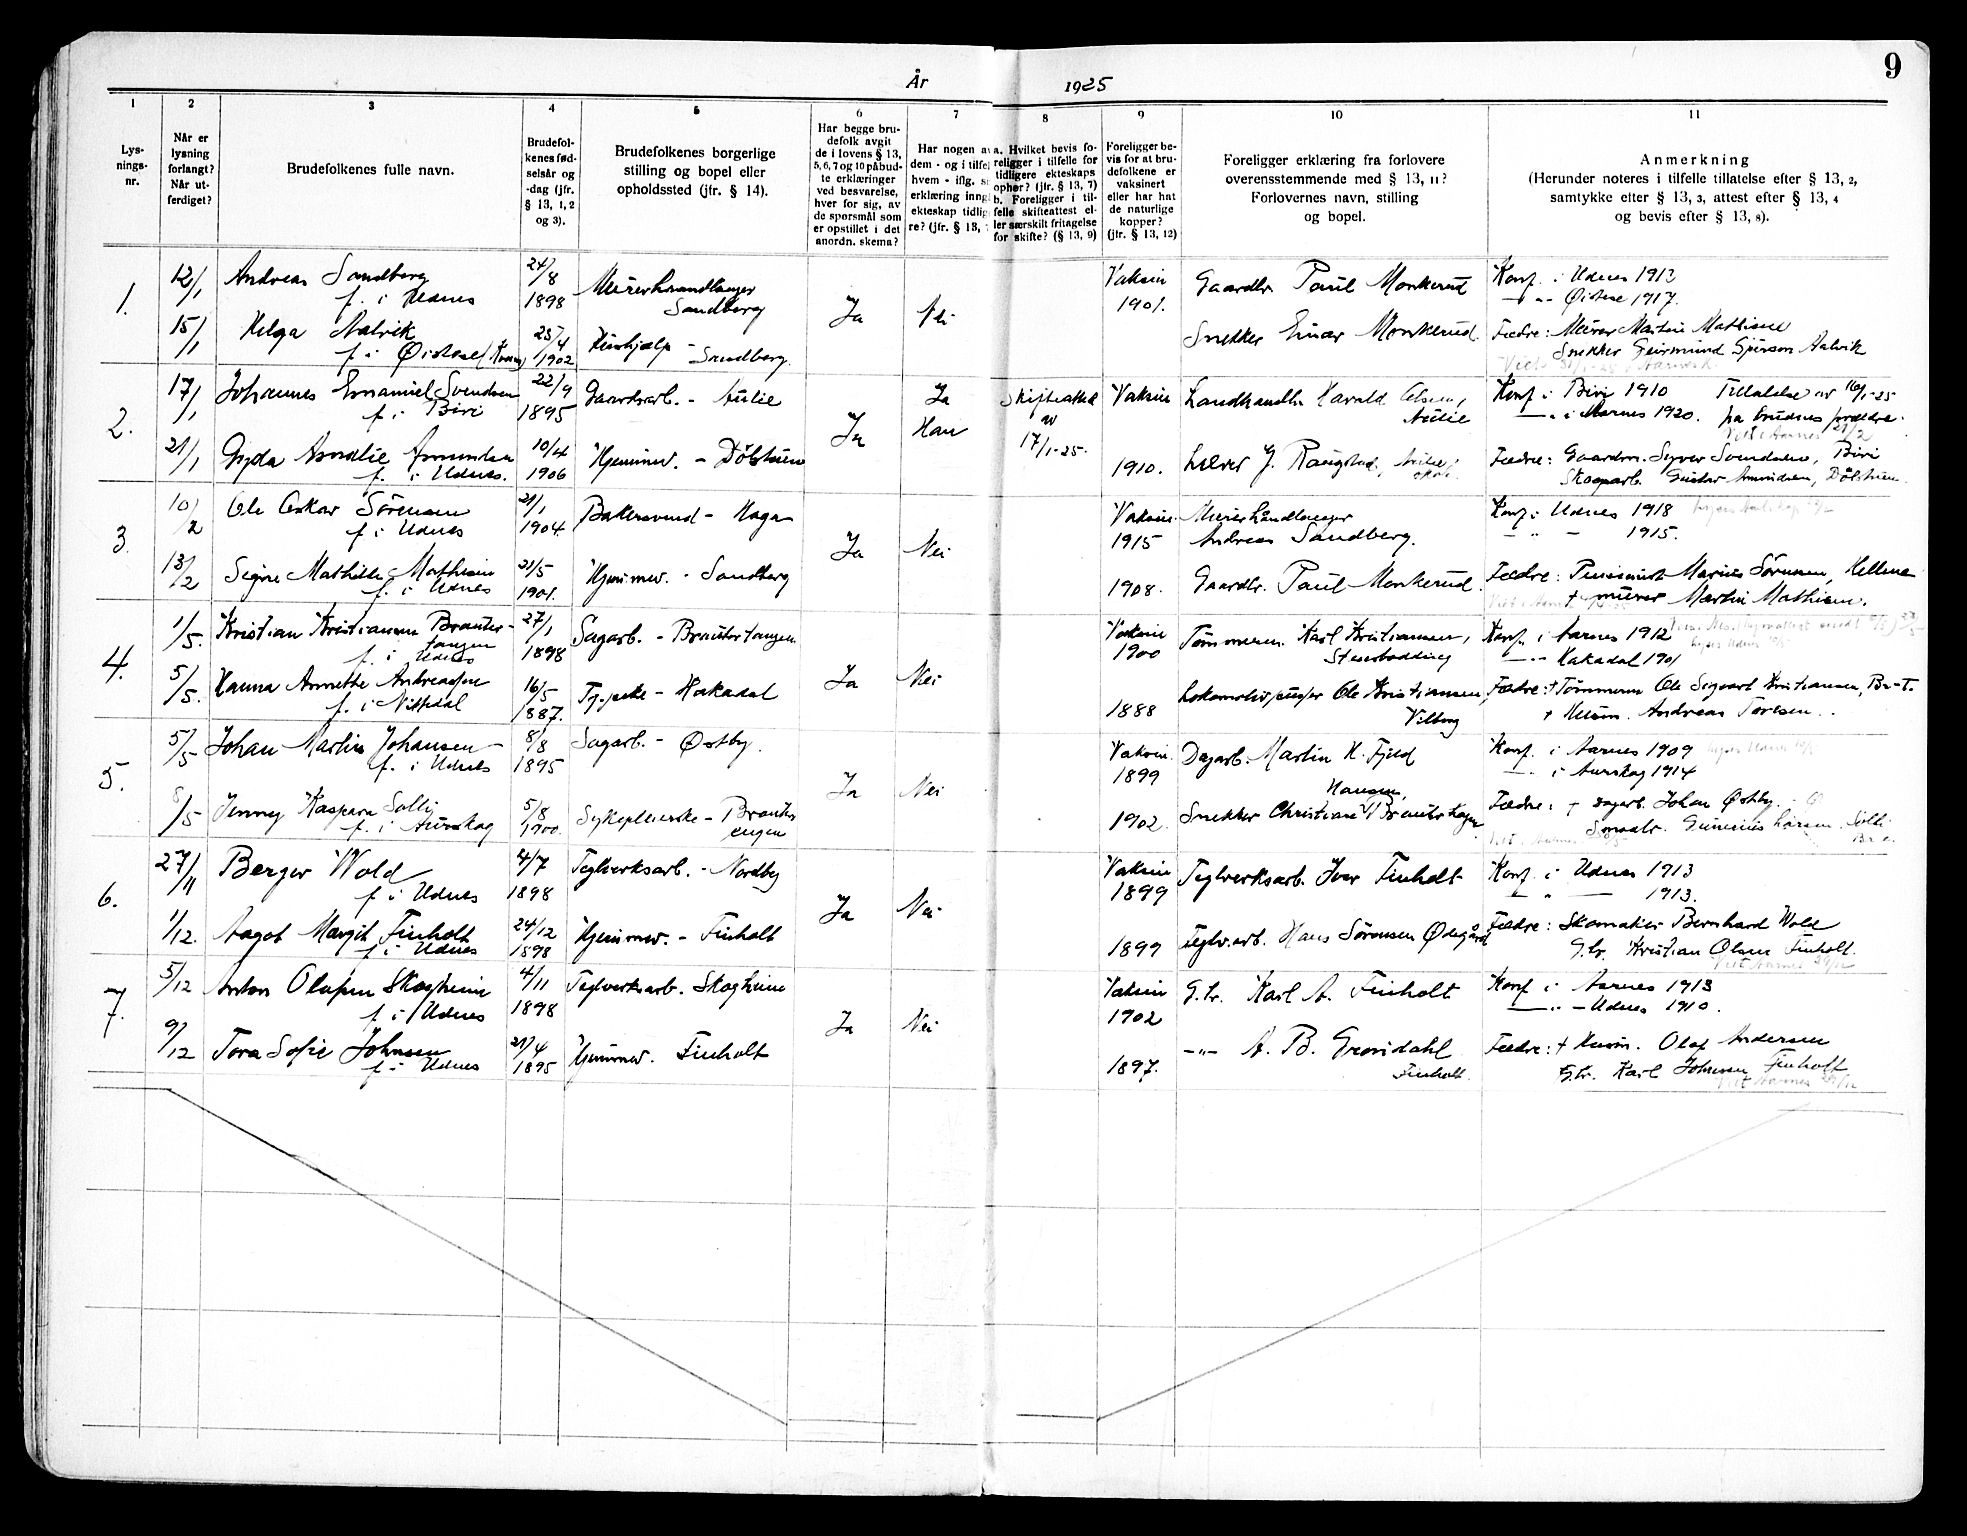 9
År 1925
1 2 3 4 5 6 7 8 9 10 11
Lysnings-nr.
Når er lysning forlangt? Når utferdiget?
Brudefolkenes fulle navn.
Brudefolkenes fødselsår og -dag (jfr. § 13, 1, 2 og 3).
Brudefolkenes borgerlige stilling og bopel eller opholdssted (jfr. § 14).
Har begge brudefolk avgit de i lovens § 13, 5, 6, 7 og 10 påbudte erklæringer ved besvarelse, hver for sig, av de spørsmål som er opstillet i det anordn. skema?
Har nogen a
dem - og i tilfel
hvem - iflg. s
erklæring inng
ekteskap tidlig
re? (jfr. § 13,
a. Hvilket bevis foreligger i tilfelle for tidligere ekteskaps ophør? (jfr. § 13, 7)
b. Foreligger i tilfelle skifteattest eller særskilt fritagelse for skifte? (§ 13, 9)
Foreligger bevis for at brudefolkene er vaksinert eller har hat de naturlige kopper? (jfr. § 13, 12)
Foreligger erklæring fra forlovere overensstemmende med § 13, 11? Forlovernes navn, stilling og bopel.
Anmerkning
(Herunder noteres i tilfelle tillatelse efter § 13, 2, samtykke efter § 13, 3, attest efter § 13, 4 og bevis efter § 13, 8).
1. 12/1 Andreas Sandberg 24/8 Murerhaandlanger Vaksin Gaardbr. Paul Monkerud Konf. i Udnes 1912
f. i Udnes 1898 Sandberg Ja Nei 1901. — " — Øistese 1917.
15/1 Helga Aalvik 23/4 Hushjælp - Snekker Einar Monkerud. Fædre: Murer Martin Mathisen
f. i Øistese 1902 Sandberg. Snekker Geirmund Aalvik
2. 17/1 Johannes Emanuel Svendsen 22/9 Gaardsarb. - Aulie Ja Skifteattest Vaksin Landhandler Harald Olsen, Konf. i Biri 1910 Tillatelse av 16/1-25
f. i Biri 1895 Ja Han av Aulie — " — i Aarnes 1920. på brudens forældre.
21/1 Gyda Amalie Amundsen 10/4 Hjemmev. - Dølstuen 17/1-25. 1910. Lærer J. Raugstad, Fædre: Gaardm. Syver Svendsen, Biri
f. i Udnes. 1906 Skogarb. Gustav Amundsen, Dølstuen.
3. 10/2 Ole Oskar Sörensen 21/1 Bakersvend - Haga Vaksin. Murerhåndlanger Konf. i Udnes 1918
f. i Udnes 1904. Ja Nei 1915 Andreas Sandberg. — " — 1915.
13/2 Signe Mathilde Mathisen 21/5 Hjemmev. - Sandberg 1908. Gaardbr. Paul Monkerud. Fædre: Marius Sörensen,
f. i Udnes 1901. † murer Martin Mathisen.
4. 1/5. Kristian Kristiansen Brautertangen 27/1 Sagarb. - Brautertangen Vaksin Tømmerm. Karl Kristiansen, Konf. i Aarnes 1912
f. i Udnes 1898 Ja Nei 1900 — " — Hakadal 1901
5/5. Hanna Annette Andreassen 16/5 - Hakadal 1888 Lokomotivpusser Ole Kristiansen, Fædre: † Tømmerm Ole Sigvart Kristiansen, Br-T.
f. i Nittedal 1887. Vilberg † Husm. Andreas Toresen.
5. 5/5 Johan Martin Johansen 8/8 Sagarb. - Østby. Vaksin. Dagarb. Martin K. Fjeld Konf. i Aarnes 1909
f. i Udnes 1895 Ja Nei 1899 Hansen, — " — i Aurskog 1914
8/5 Jenny Kaspara Solli 5/8 Sykepleierske - 1902. Snekker Christian Fædre: † Dagarb. Johan Østby.
f. i Aurskog 1900. Larsen. Solli
6. 27/11 Berger Wold 4/7 Teglverksarb. - Nordby Vaksin Teglverksarb. Iver Finholt Konf. i Udnes 1913
f i Udnes 1898 Ja Nei 1899 — " — 1913.
1/12. Aagot Margit Finholt 24/12 Hjemmev. - Finholt 1899 Teglv.arb. Hans Sörensen Ødegård Fædre: Skomaker Bernhard Wold
f i Udnes 1898 G.br. Kristian Olsen Finholt.
7. 5/12 Anton Olafsen Skogheim 4/11 Teglverksarb. Skogheim Vaksin G.br. Karl A. Finholt Konf. i Aarnes 1913
f i Udnes 1898 Ja Nei 1902 — " — Udnes 1910.
9/12 Tora Sofie Johnsen 21/4 Hjemmev. Finholt 1897. — " — A. B. Grøndahl Fædre: † Husm. Olaf Andersen
f i Udnes 1895 Finholt. G.br. Karl Johnsen Finholt.